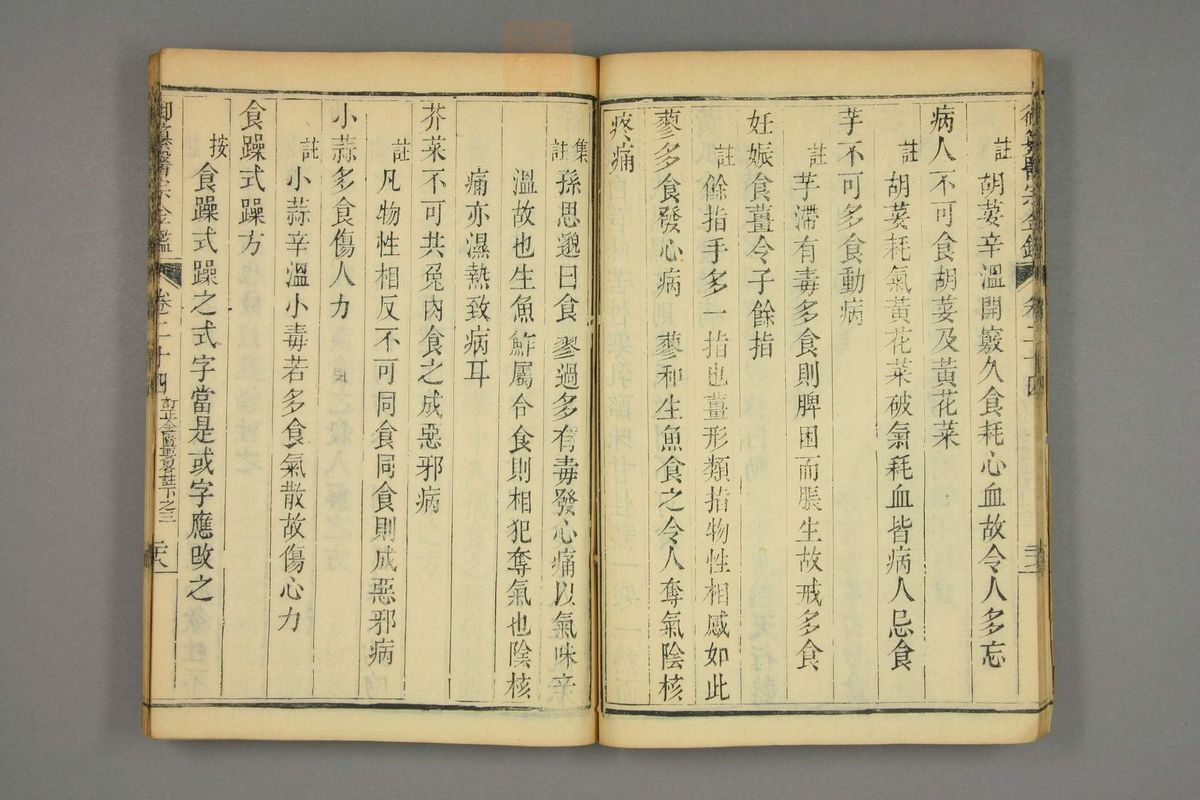 御纂醫宗金鑑 卷二十四
註 胡荽辛溫開竅久食耗心血故令人多忘
病人不可食胡荽及黃花菜
註 胡荽耗氣黃花菜破氣耗血皆病人忌食
芋不可多食動病
註 芋滯有毒多食則脾困而脹生故戒多食
妊娠食薑令子餘指
註 餘指手多一指也薑形類指物性相感如此
蓼多食發心病 蓼和生魚食之令人奪氣陰核
疼痛
集註 孫思邈曰食蓼過多有毒發心痛以氣味辛
溫故也生魚鮓屬合食則相犯奪氣也陰核
痛亦濕熱致病耳
芥菜不可共兔肉食之成惡邪病
註 凡物性相反不可同食同食則成惡邪病
小蒜多食傷人力
註 小蒜辛溫小毒若多食氣散故傷心力
食躁式躁方
按 食躁式躁之式字當是或字應改之
御纂醫宗金鑑 卷二十四 訂正金匱要畧註下之三 二十八